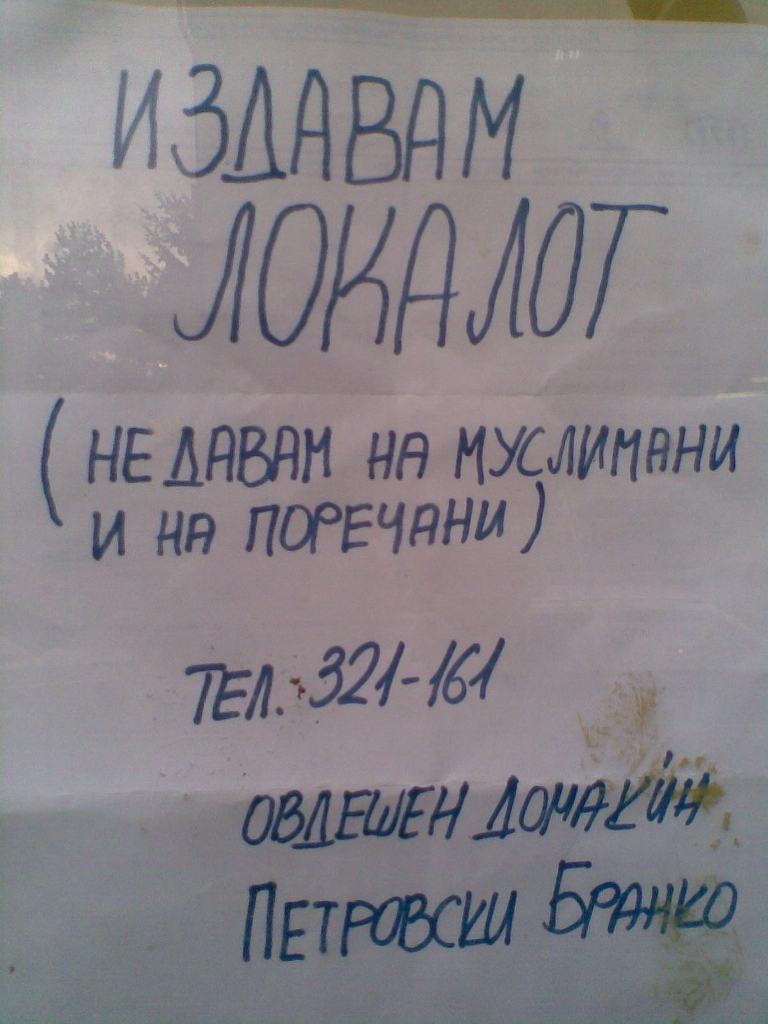 ИЗДАВАМ
ЛОКАЛОТ
(НЕ ДАВАМ НА МУСЛИМАНИ
И НА ПОРЕЧАНИ)
ТЕЛ. 321-161
ОВДЕШЕН ДОМАЌИН
ПЕТРОВСКИ БРАНКО